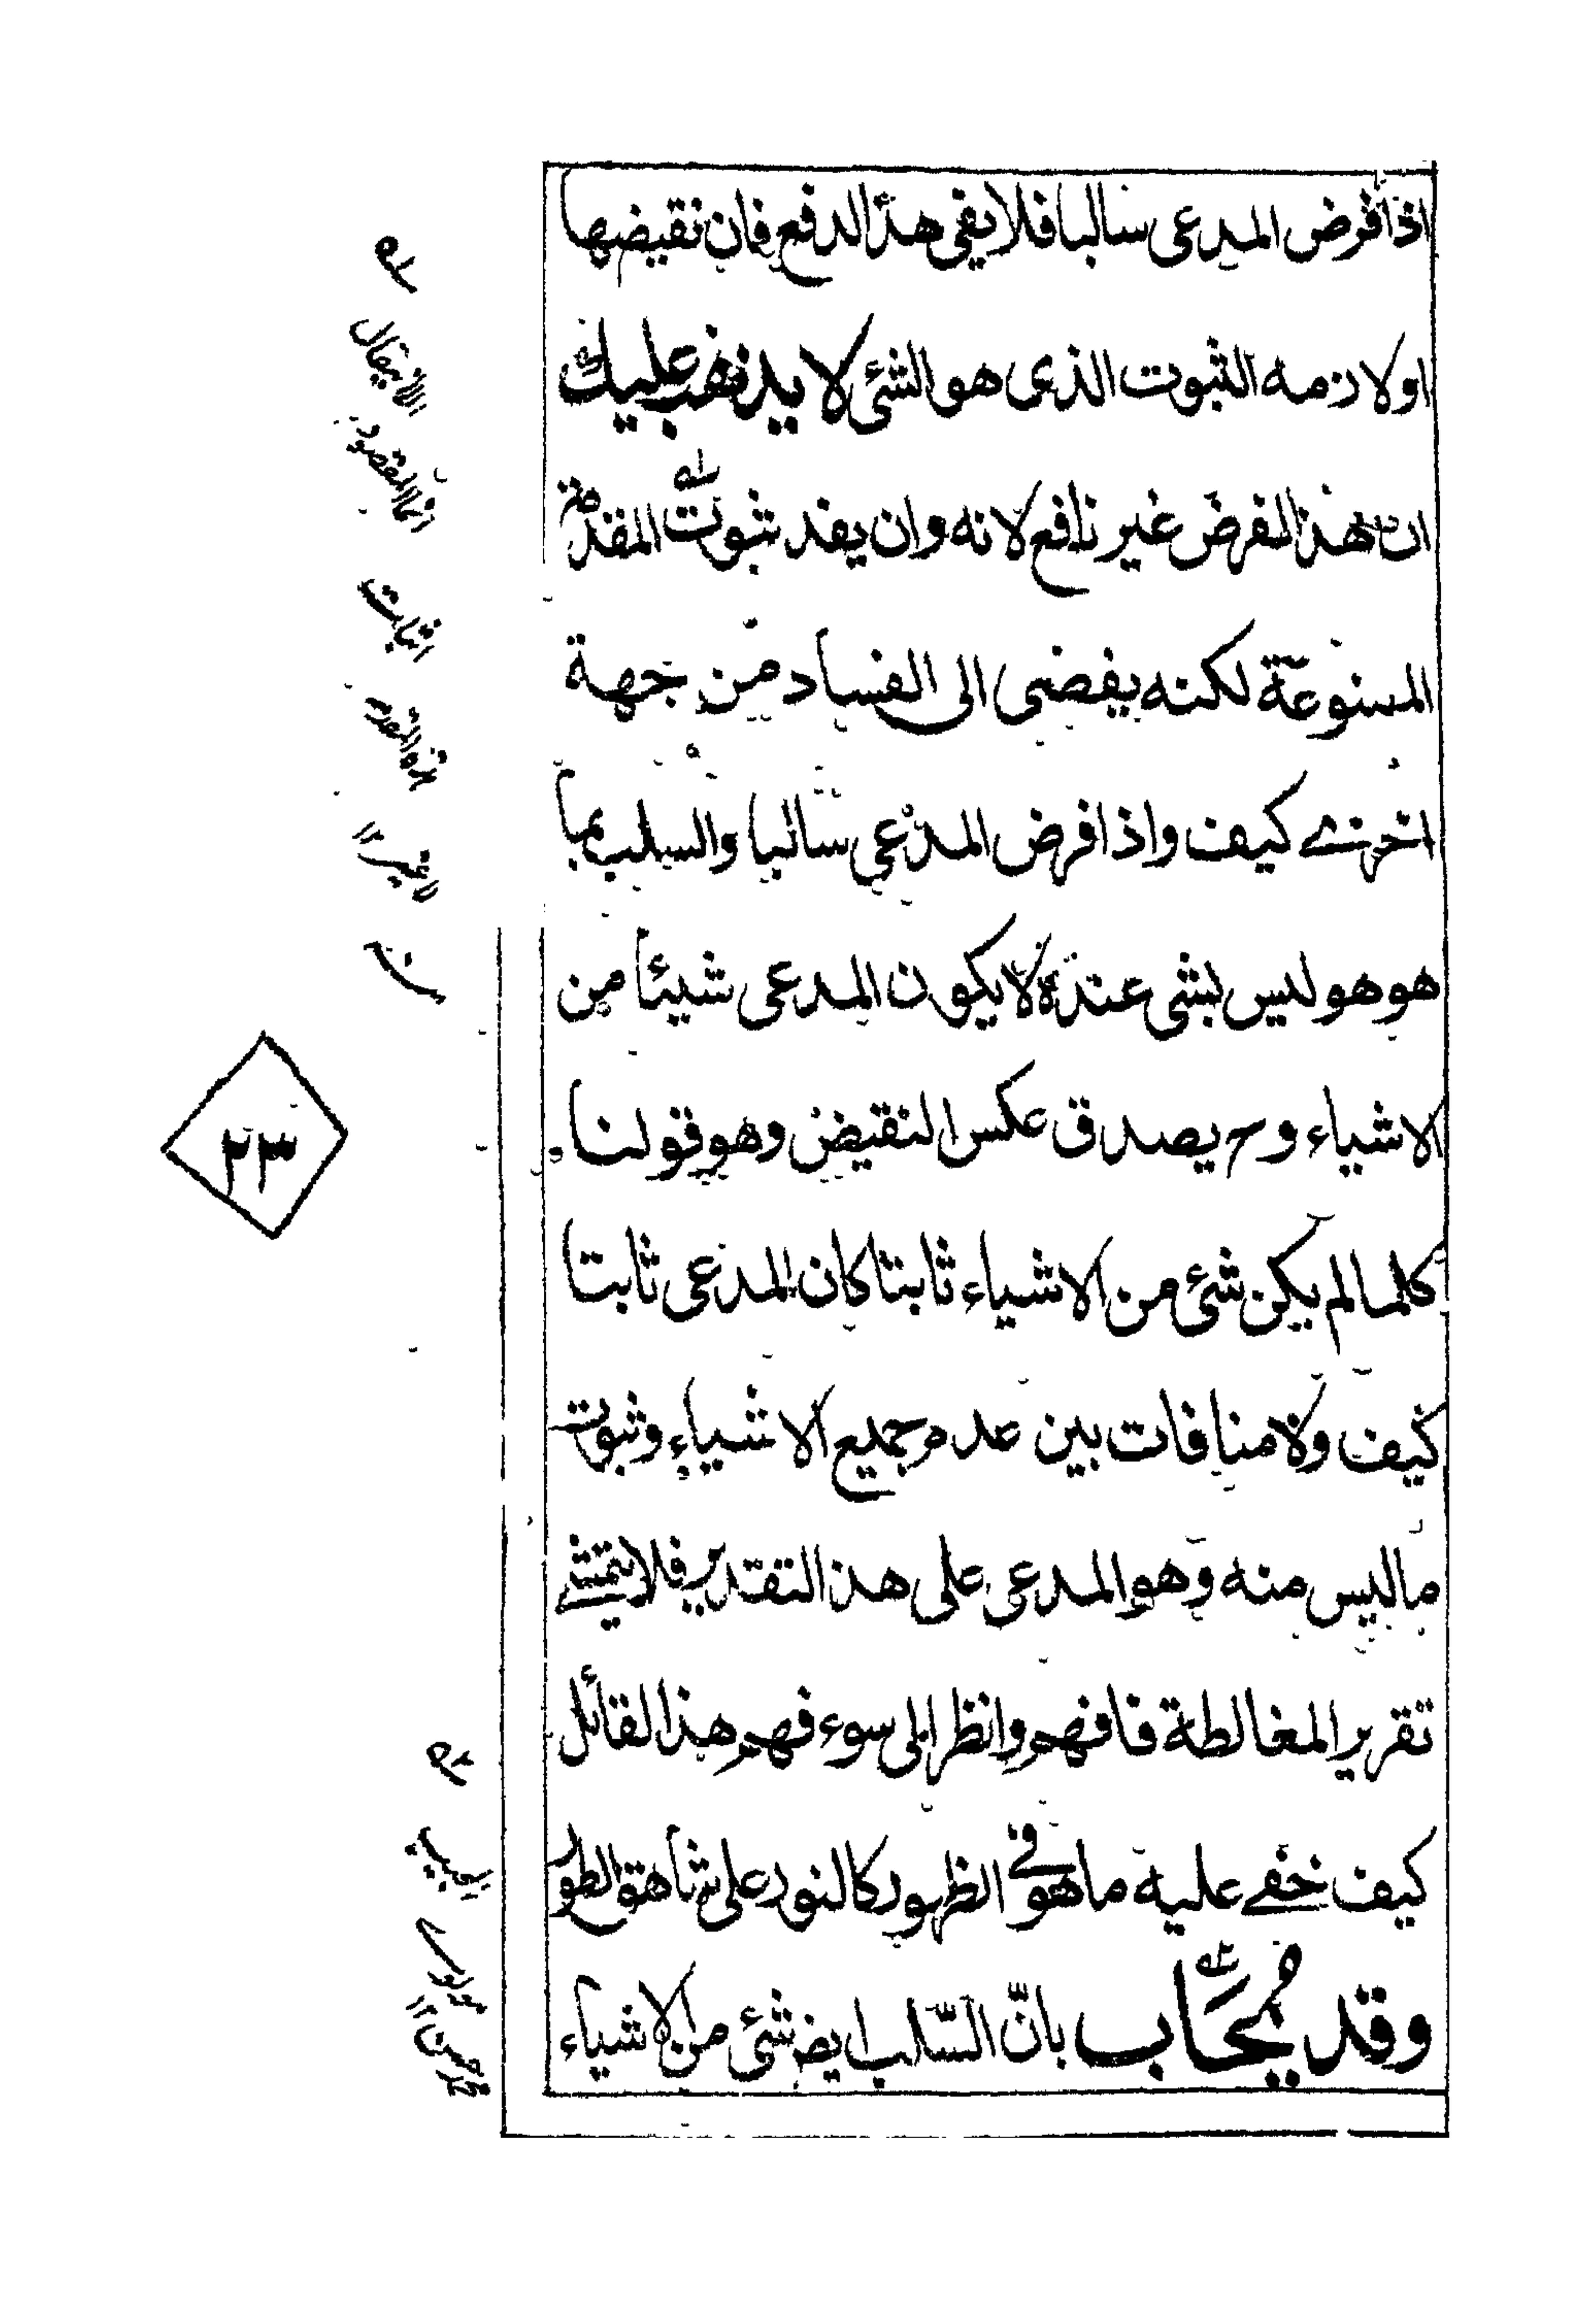 اذا فرض المدعى سالبا فلا يفى هذا الدفع فان نقيضها
او لازمه الثبوت الذى هو الشئ لا يذهب عليك
ان هذا الفرض غير نافع لانه وان يفد ثبوت المقدمة
الممنوعة لكنه يفضى الى الفساد من جهة
اخرى كيف واذا فرض المدعى سالبا والسلب بما
هو هو ليس بشى عنده لا يكون المدعى شيئا من
الاشياء وح يصدق عكس النقيض وهو قولنا
كلما لم يكن شئ من الاشياء ثابتا كان المدعى ثابتا
كيف ولا منافات بين عدم جميع الاشياء وثبوت
ما ليس منه وهو المدعى على هذا التقدير فلا يتمشى
تقرير المغالطة فافهم وانظر الى سوء فهم هذا القائل
كيف خفى عليه ما هو فى الظهور كالنور على شاهق الطور
وقد يجاب بانّ السّلب ايضا شئ من الاشياء
له
الا ان يقال
انما المقصود
اثبات
هذه المقدمة
لا غير ١٢
٢٣
له
المجيب
محمد حسن ١٢